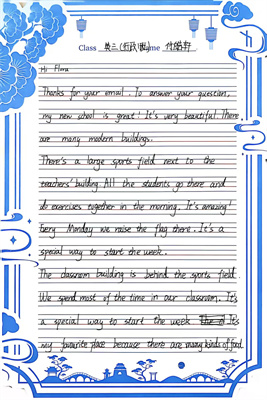 Class 英三(行政1班) me
Hi Flora
Thanks for your email. To answer your question,
my new school is great! It's very beautiful. There
are many modern buildings.
There's a large sports field next to the
teachers' building. All the students go there and
do exercises together in the morning. It's amazing!
Every Monday we raise the flag there. It's a
special way to start the week.
The classroom building is behind the sports field.
We spend most of the time in our classroom. It's
a special way to start the week It's
my favourite place because there are many kinds of food.